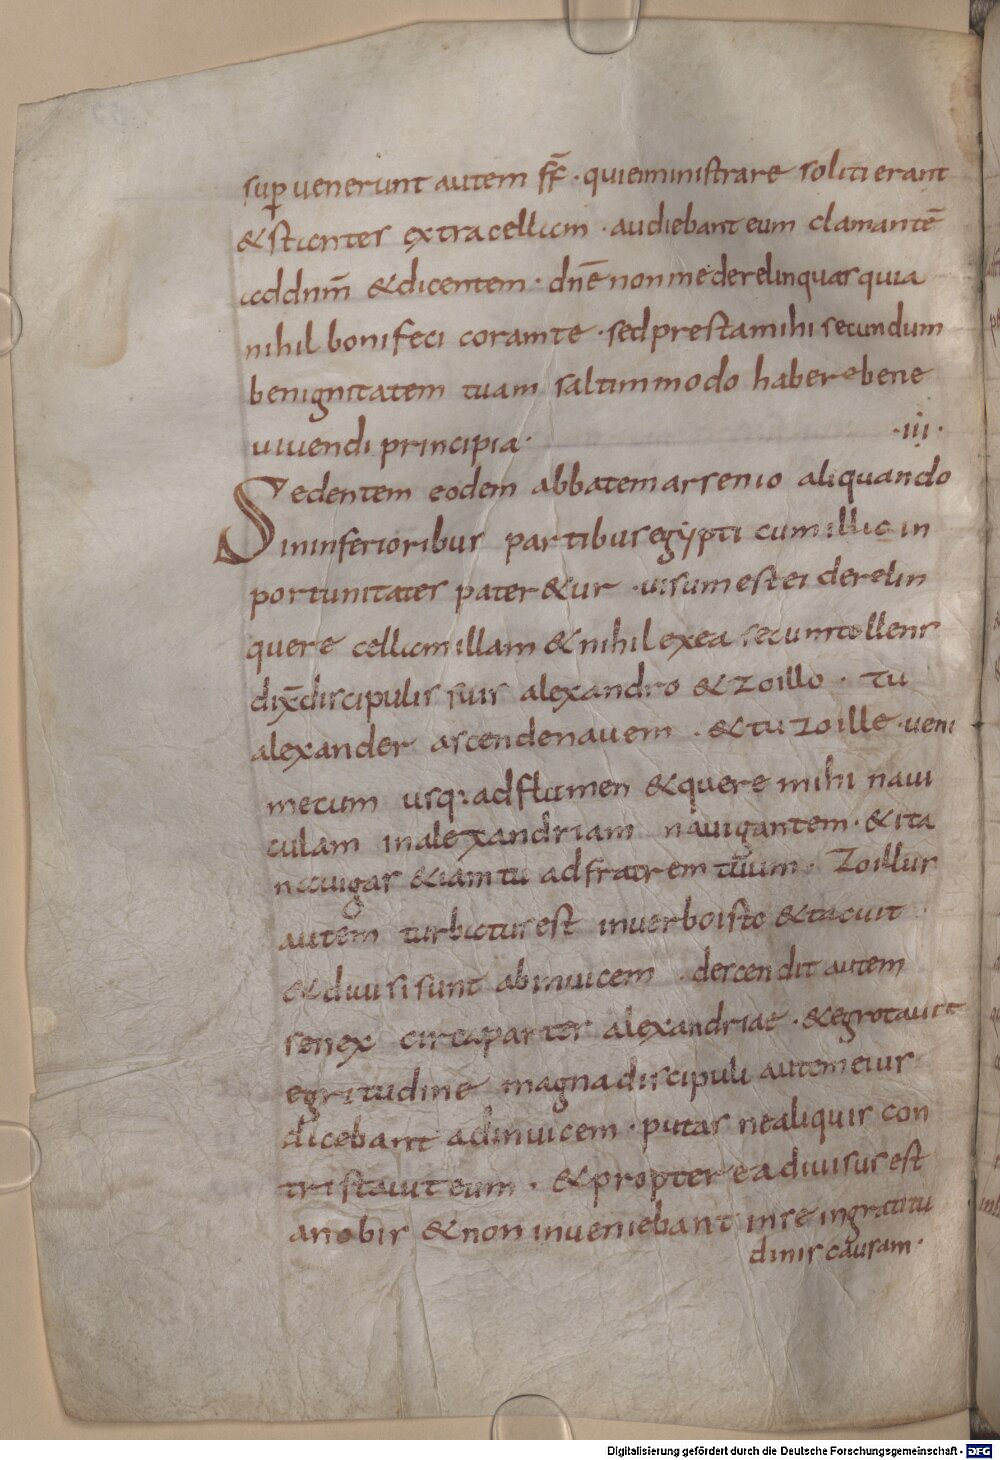 sup̱uenerunt autem ff̄ · quieiministrare soliti erant
& stantes extra cellam · audiebant eum clamantē
ad dnm̄ & dicentem · dnē non me derelinquas quia
nihil boni feci coram te · sed presta mihi secundum
benignitatem tuam saltim modo habere bene
uiuendi principia ·
· iii ·
Sedentem eodem abbatem arsenio aliquando
in inferioribus partibus egypti cum illic in
portunitates pater&ur · uisum est ei derelin
quere cellam illam & nihil ex ea secum tollens
dix̄ discipulis suis alexandro & zoillo · tu
alexander ascende nauem · & tu zoille · ueni
mecum usq; ad flumen & quere mihi naui
culam in alexandriam nauigantem · & ita
nauigas &iam tu ad fratrem tuum · Zoillus
autem turbatus est in uerbo isto & tacuit
& diuisi sunt abinuicem · descendit autem
senex circa partes alexandriae · & egrotauit
egritudine magna discipuli autem eius
dicebant adinuicem · putas ne aliquis con
tristauit eum · & propterea diuisus est
a nobis & non inueniebant in se ingratitu
dinis causam ·
Digitalisierung gefördert durch die Deutsche Forschungsgemeinschaft - DFG